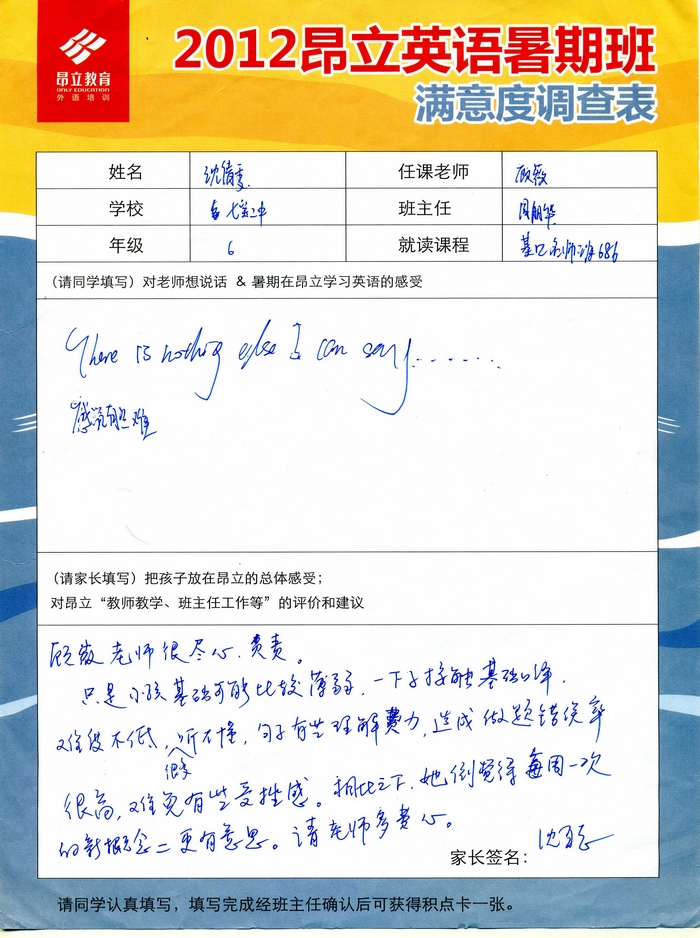 昂立教育
ONLY EDUCATION
外语培训
2012昂立英语暑期班
满意度调查表
姓名 沈倩雯 任课老师 顾薇
学校 七宝二中 班主任 周朋华
年级 6 就读课程 基口名师班686
(请同学填写)对老师想说话 & 暑期在昂立学习英语的感受
There is nothing else I can say.......
感觉有些难
(请家长填写)把孩子放在昂立的总体感受;
对昂立“教师教学、班主任工作等”的评价和建议
顾薇老师很尽心、负责。
只是小孩基础可能比较薄弱,一下子接触基础口译,
难度不低,很多听不懂,句子有些理解费力,造成做题错误率
很高,难免有些受挫感。相比之下,她倒觉得每周一次
的新概念二更有意思。请老师多费心。
家长签名: 沈
请同学认真填写,填写完成经班主任确认后可获得积点卡一张。